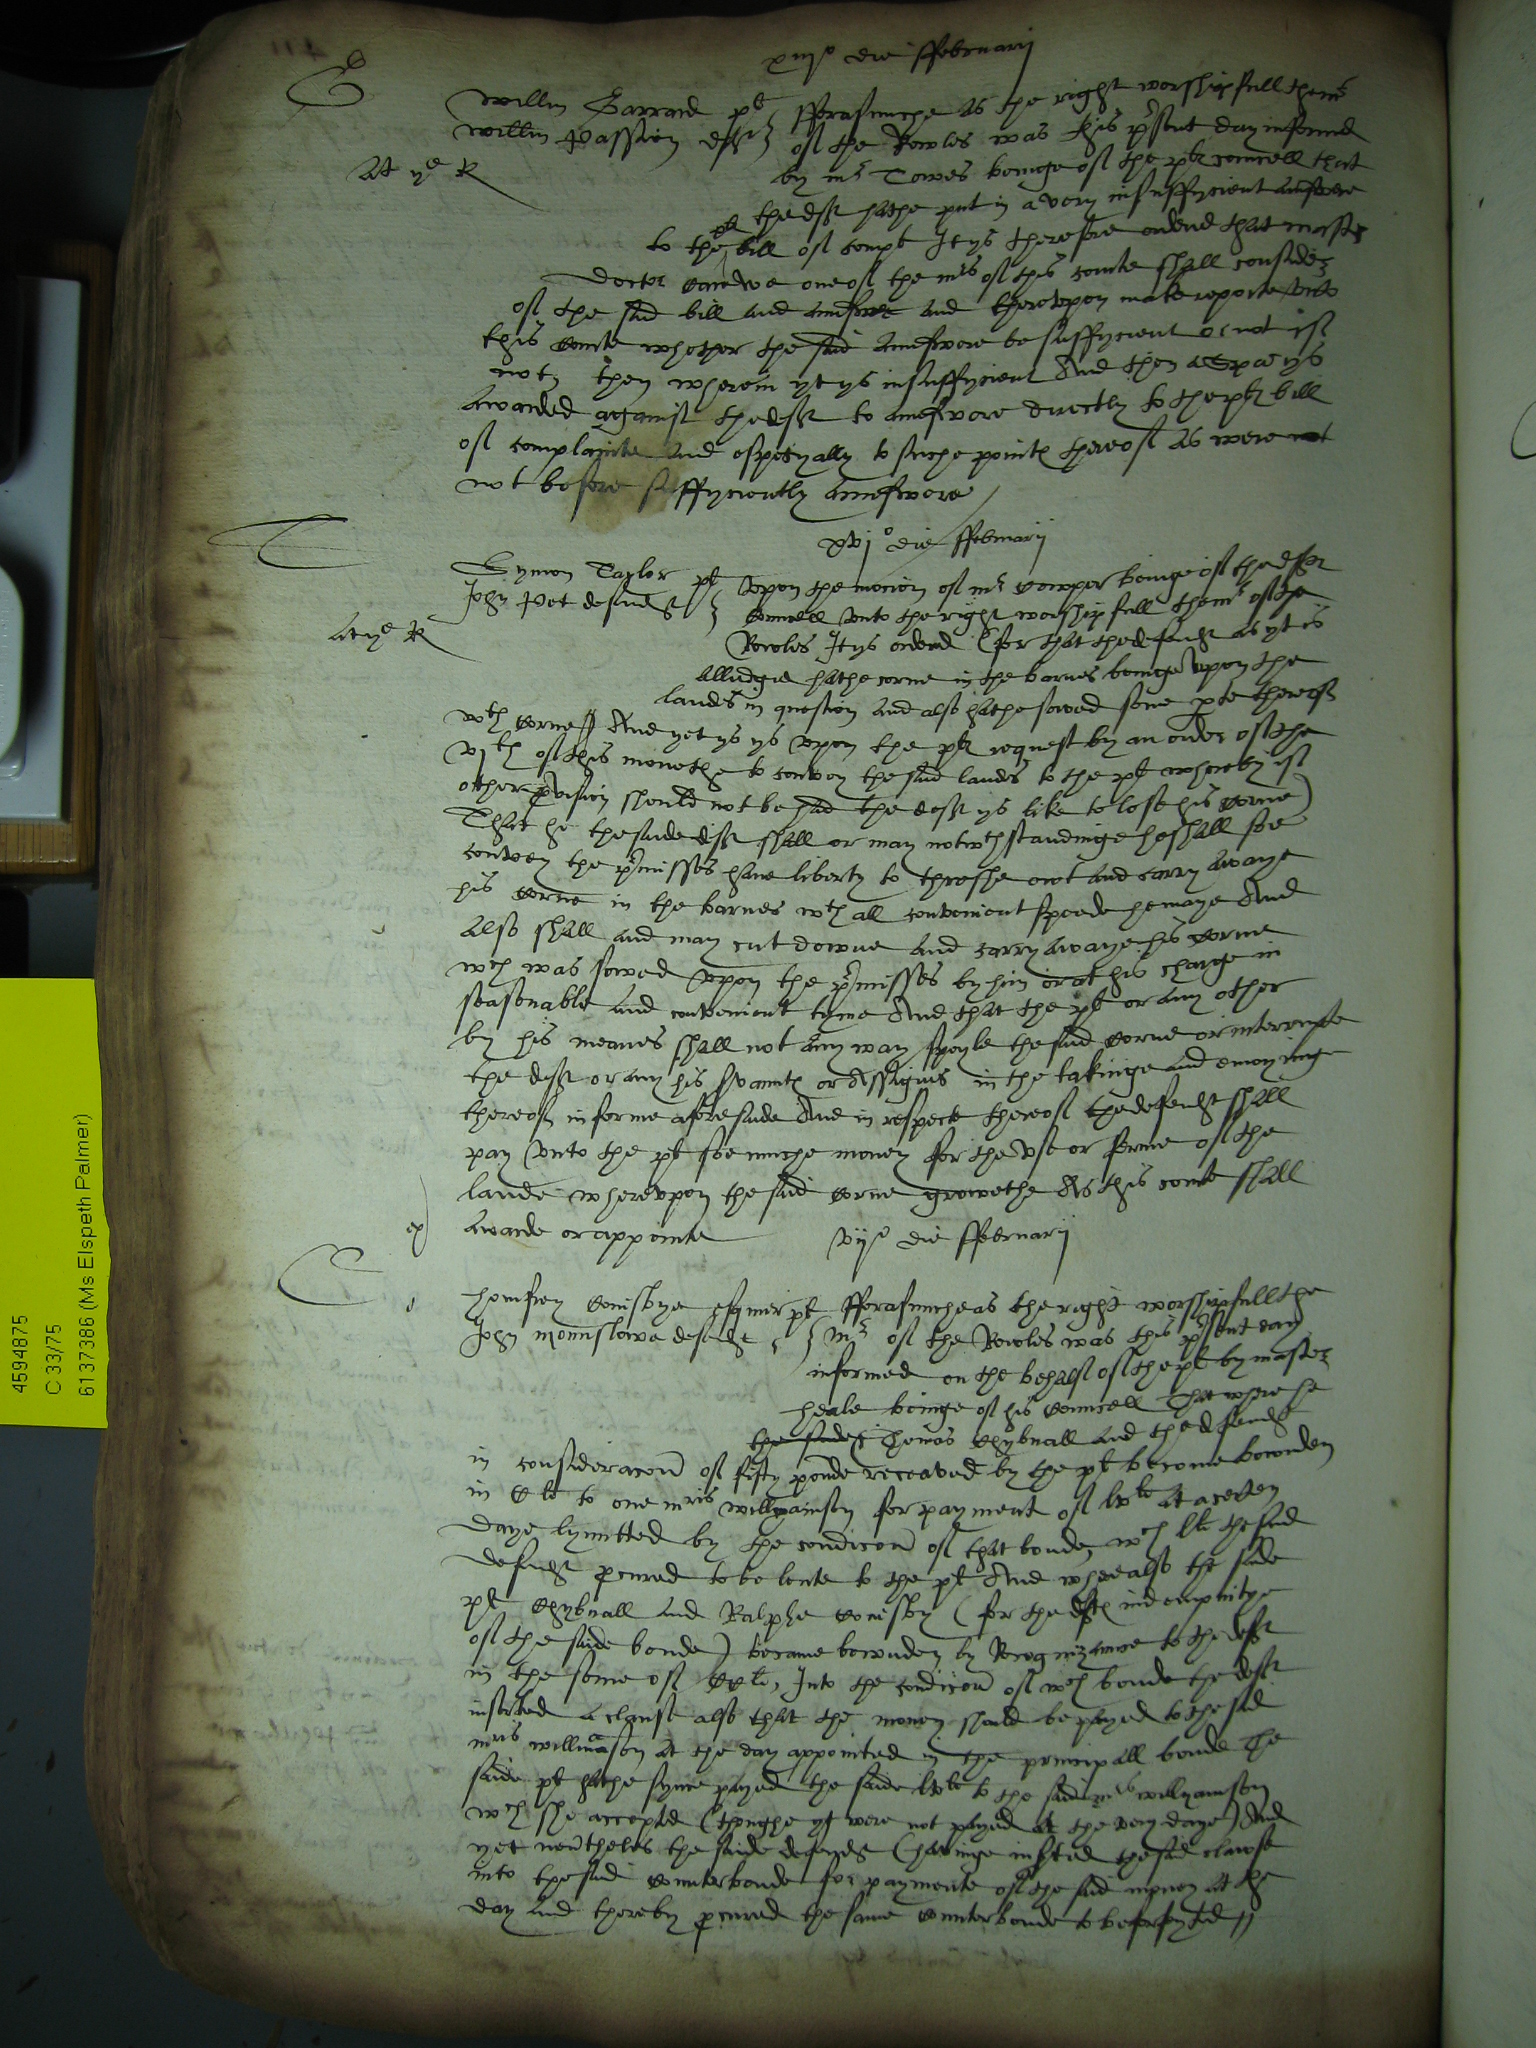 xiij° die ffebruarij
G
Willm Garrard plt
Willm Passion deft
fforasmuche as the right worshipfull the mr
of the Rowles was this pſent day informed
At ye R
by mr Towes beinge of the plts councell that
thedeft hathe put in a very insuffycient answere
to the plts bill of complt It ys therefore ordered that master
Doctor one of the mrs of this courte shall consider
of the said bill and answere and therevpon make reporte vnto
this courte whether the said answere be suffycient or not if
not then wherein yt ys insuffycient And then a spa ys
awarded against thedeft to answere directly to the plts bill
of complainte and especyally to suche points thereof as were not
not before suffycyently answere
xvj° die ffebruarij
T
Symon Taylor plt
John Pet defendt
Vpon the mocion of mr Cowper beinge of thedefts
councell vnto the right worshipfull the mr of the
At ye R
Rowles It ys ordered (for that thedefendt as yt is
alledged hathe corne in the barnes beinge vpon the
lands in question and also hathe sowed some pte thereof
wth corne And yet ys vpon the plts request by an order of the
vjth of this monethe to convey the said lands to the plt whereby if
other pvision should not be had the deft ys like to lose his corne)
That he the saide deft shall or may notwthstandinge he shall soe
convey the pmisses have liberty to threshe owt and carry awaye
his corne in the barnes wth all convenient speede he maye And
also shall and may cut downe and carry awaye his corne
wch was sowed vpon the pmisses by him or at his charge in
seasonable and convenient tyme And that the plt or any other
by his meanes shall not any way spoyle the said corne or interrupte
the deft or any his svants or Assignes in the takinge and enioyinge
thereof in forme aforesaide And in respecte thereof the defendt shall
pay vnto the plt soe muche money for the vse or ferme of the
lande wherevpon the said corne growethe As this courte shall
awarde or appointe
ex
vij° die ffebruarij
C
Homfrey Conisbye esquier plt
John Mounslowe defendt
fforasmuche as the right worshipfull the
mr of the Rowles was this pſent day
informed on the behalf of the plt by master
Heale beinge of his councell That where he
the saide Thomas Chybnall and the defendt
in consideracon of fifty pounde receaved by the plt become bownden
in Cli to one mris Willyamson for payment of lvli at a certen
daye lymitted by the condicon of that bonde wch lli the said
defendt pcured to be lente to the plt And where also the saide
plt Chybnall and Ralphe Conisby (for the defts indempnitye
of the saide bonde) became bownden by Recognizannce to the deft
in the some of CCli, Into the condicon of wch bonde the deft
inserted a clause also that the money should be payed to the said
mris Willmason at the day appointed in the principall bonde The
saide plt hathe synce payed the saide lvli to the said mris Willyamson
wch she accepted (thoughe yt were not payed at the very daye) And
yet nevtheles the saide defendt (havinge inserted the said clawse
into the said counterbonde for paymente of the said money at the
day and thereby pcured the same counterbonde to be forfeyted
4594875
C 33/75
6137386 (Ms Elspeth Palmer)